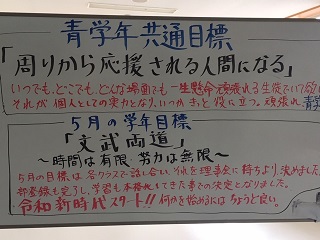 青学年共通目標
「周りから応援される人間になる」
いつでも、どこでも、どんな場面でも一生懸命頑張れる生徒でいて
それが個人としての実力となり、いつかきっと役に立つ。頑張れ 青学
5月の学年目標
「文武両道」
～時間は有限 努力は無限～
5月の目標は各クラスで話し合い、それを理事会に持ちより、決めました
部登録も完了し、学習も本格化してきた春での決定となりました。
令和新時代スタート!! 何かを始めるにはちょうど良い